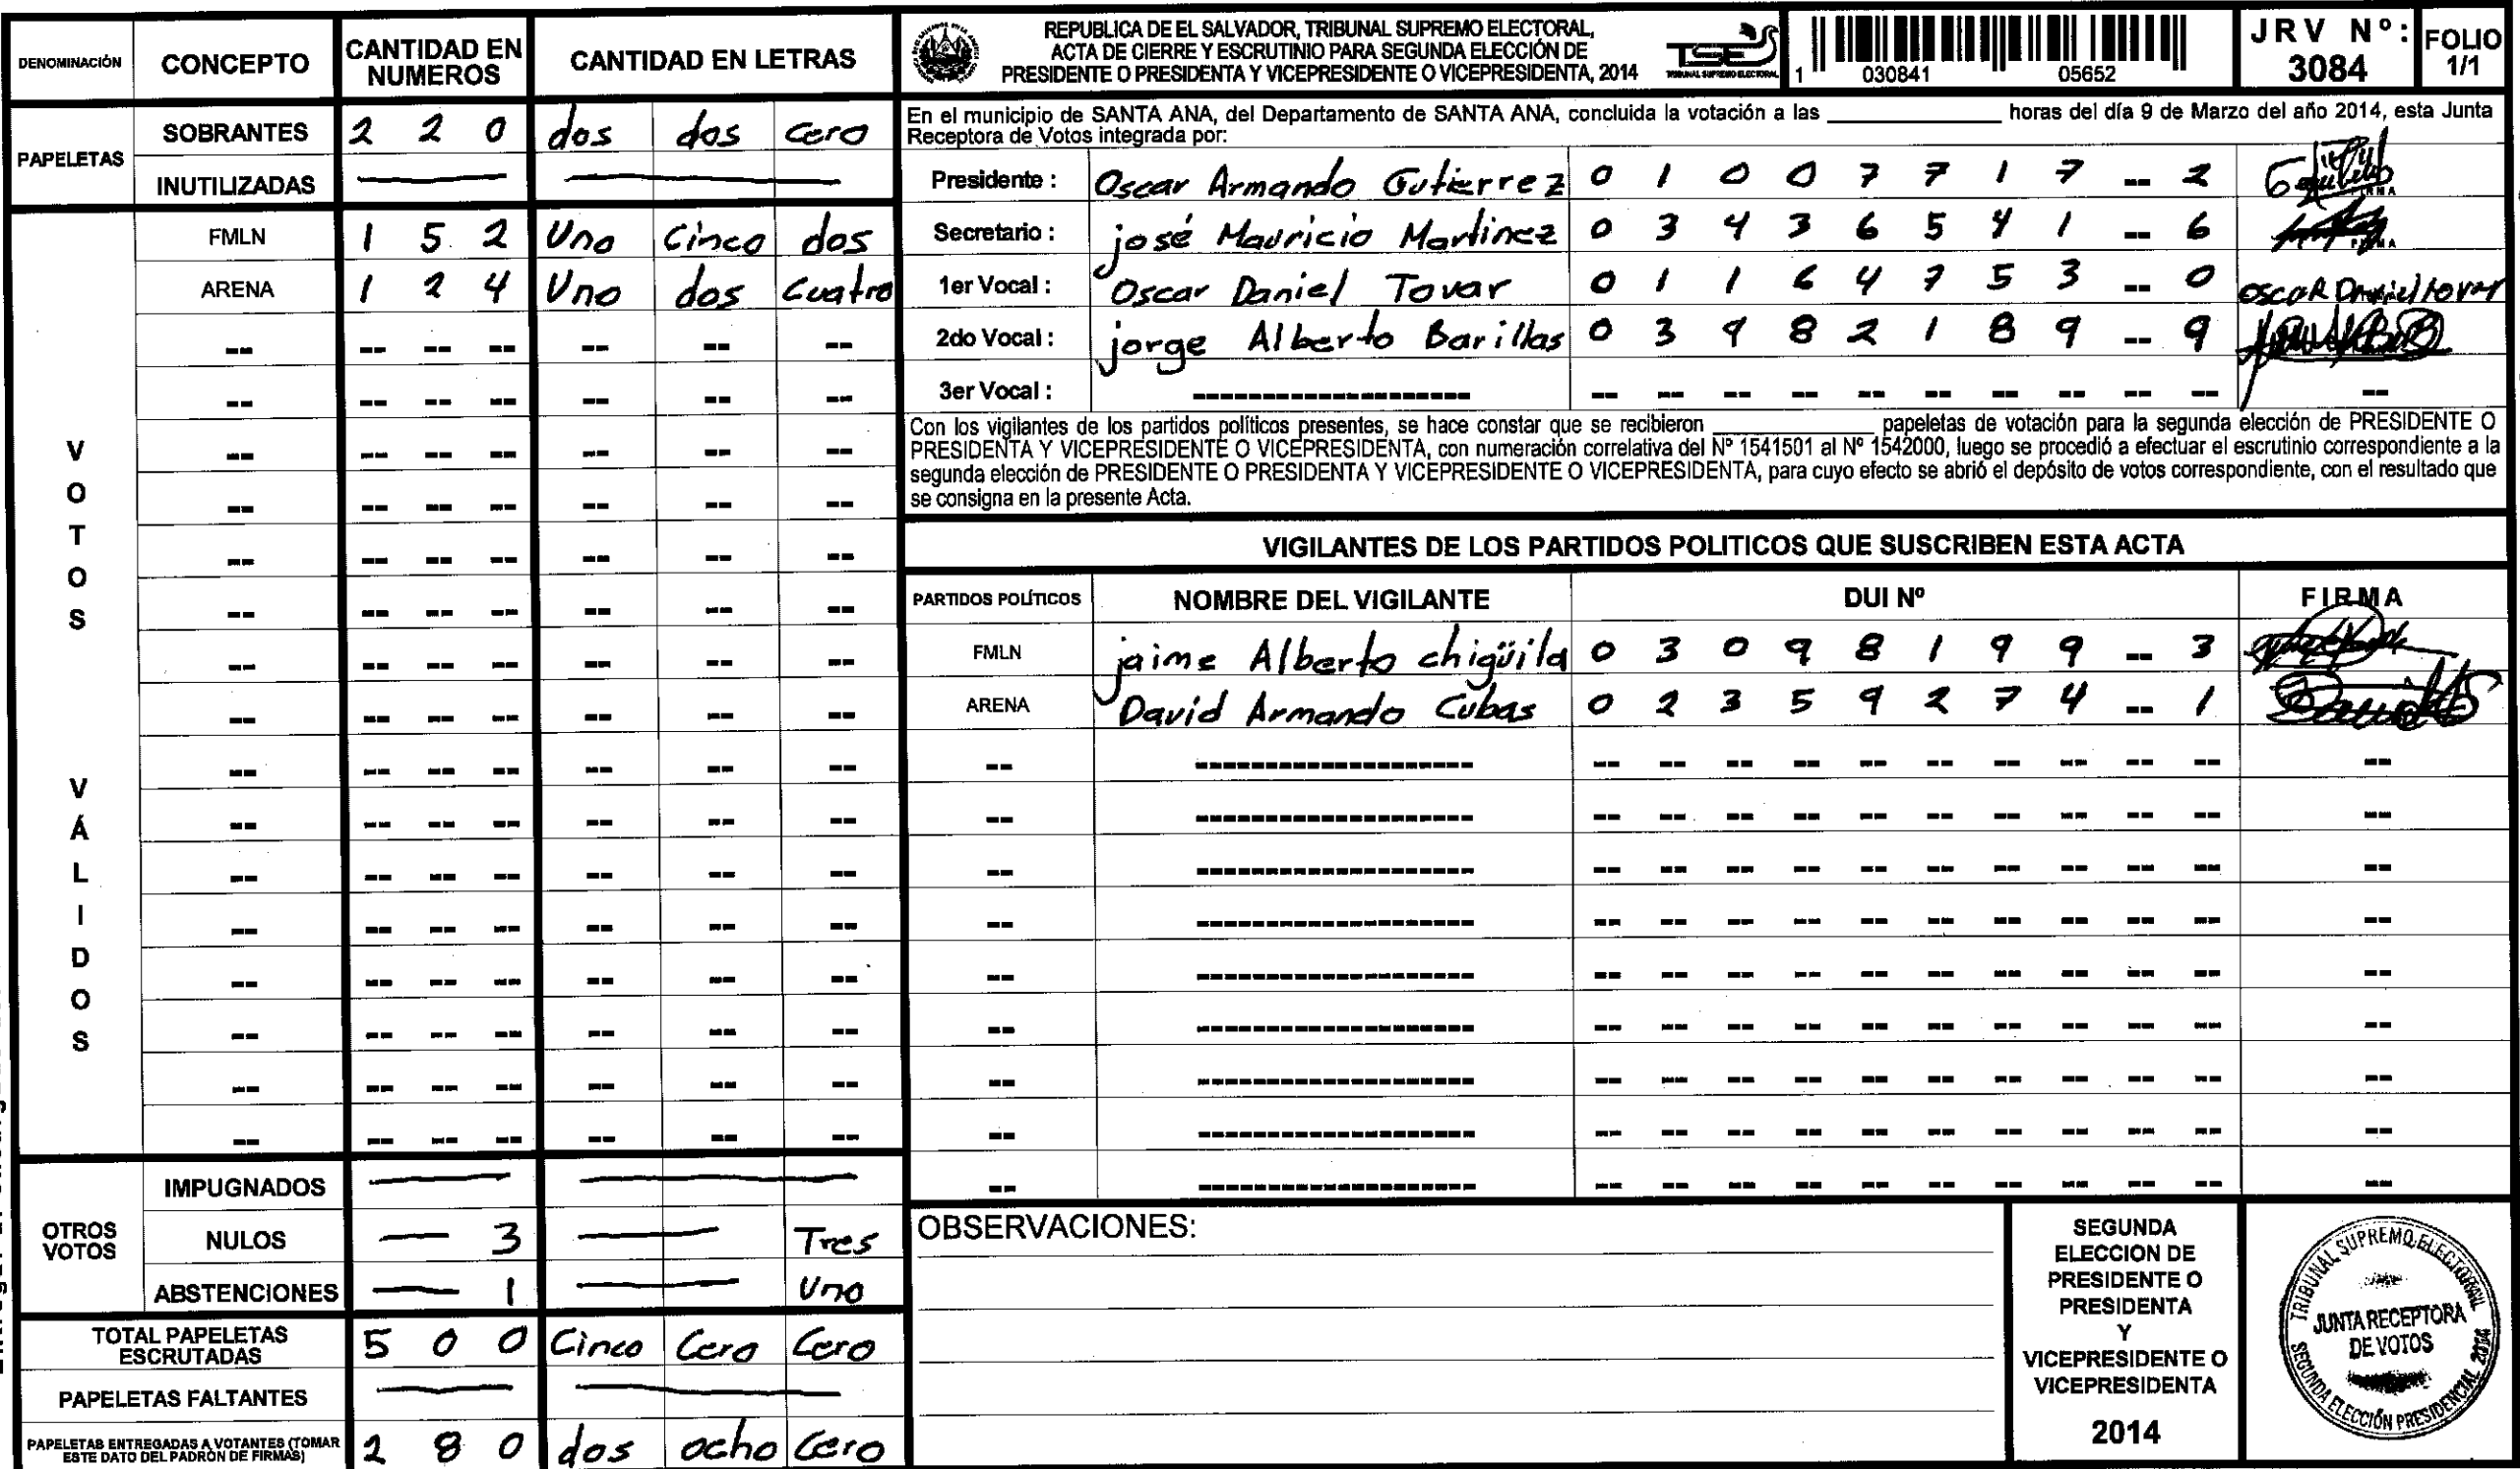 DENOMINACIÓN CONCEPTO CANTIDAD EN NUMEROS CANTIDAD EN LETRAS
PAPELETAS
SOBRANTES 2 2 0 dos dos Cero
INUTILIZADAS
VOTOS VÁLIDOS
FMLN 1 5 2 Uno Cinco dos
ARENA 1 2 4 Uno dos Cuatro
OTROS VOTOS
IMPUGNADOS
NULOS — 3 — Tres
ABSTENCIONES — 1 — Uno
TOTAL PAPELETAS ESCRUTADAS 5 0 0 Cinco Cero Cero
PAPELETAS FALTANTES
PAPELETAS ENTREGADAS A VOTANTES (TOMAR ESTE DATO DEL PADRÓN DE FIRMAS) 2 8 0 dos ocho Cero
REPUBLICA DE EL SALVADOR, TRIBUNAL SUPREMO ELECTORAL,
ACTA DE CIERRE Y ESCRUTINIO PARA SEGUNDA ELECCIÓN DE
PRESIDENTE O PRESIDENTA Y VICEPRESIDENTE O VICEPRESIDENTA, 2014
TSE
TRIBUNAL SUPREMO ELECTORAL
1 030841 05652
JRV Nº: 3084
FOLIO 1/1
En el municipio de SANTA ANA, del Departamento de SANTA ANA, concluida la votación a las ____________ horas del día 9 de Marzo del año 2014, esta Junta
Receptora de Votos integrada por:
Presidente : Oscar Armando Gutierrez 0 1 0 0 7 7 1 7 -- 2
Secretario : josé Mauricio Martinez 0 3 4 3 6 5 4 1 -- 6
1er Vocal : Oscar Daniel Tovar 0 1 1 6 4 7 5 3 -- 0 oscar Daniel tovar
2do Vocal : jorge Alberto Barillas 0 3 9 8 2 1 8 9 -- 9
3er Vocal :
Con los vigilantes de los partidos políticos presentes, se hace constar que se recibieron ____________ papeletas de votación para la segunda elección de PRESIDENTE O
PRESIDENTA Y VICEPRESIDENTE O VICEPRESIDENTA, con numeración correlativa del Nº 1541501 al Nº 1542000, luego se procedió a efectuar el escrutinio correspondiente a la
segunda elección de PRESIDENTE O PRESIDENTA Y VICEPRESIDENTE O VICEPRESIDENTA, para cuyo efecto se abrió el depósito de votos correspondiente, con el resultado que
se consigna en la presente Acta.
VIGILANTES DE LOS PARTIDOS POLITICOS QUE SUSCRIBEN ESTA ACTA
PARTIDOS POLÍTICOS NOMBRE DEL VIGILANTE DUI Nº FIRMA
FMLN jaime Alberto chigüila 0 3 0 9 8 1 9 9 -- 3
ARENA David Armando Cubas 0 2 3 5 9 2 7 4 -- 1
OBSERVACIONES:
SEGUNDA
ELECCION DE
PRESIDENTE O
PRESIDENTA
Y
VICEPRESIDENTE O
VICEPRESIDENTA
2014
TRIBUNAL SUPREMO ELECTORAL
JUNTA RECEPTORA
DE VOTOS
SEGUNDA ELECCIÓN PRESIDENCIAL 2014